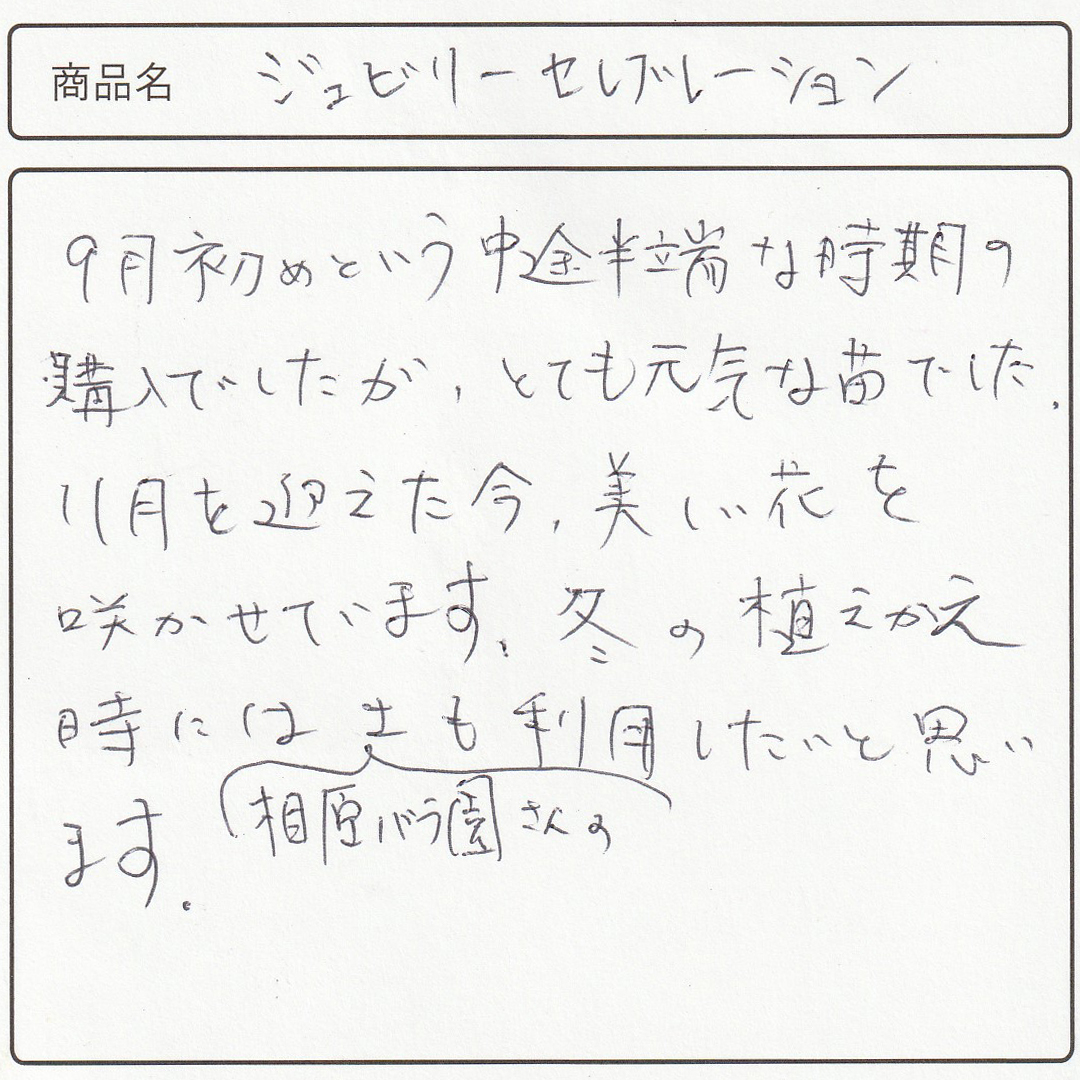 商品名 ジュビリーセレブレーション
9月初めという中途半端な時期の
購入でしたが、とても元気な苗でした。
11月を迎えた今、美しい花を
咲かせています。冬の植えかえ
時には土も利用したいと思い
相原バラ園さんの
ます。